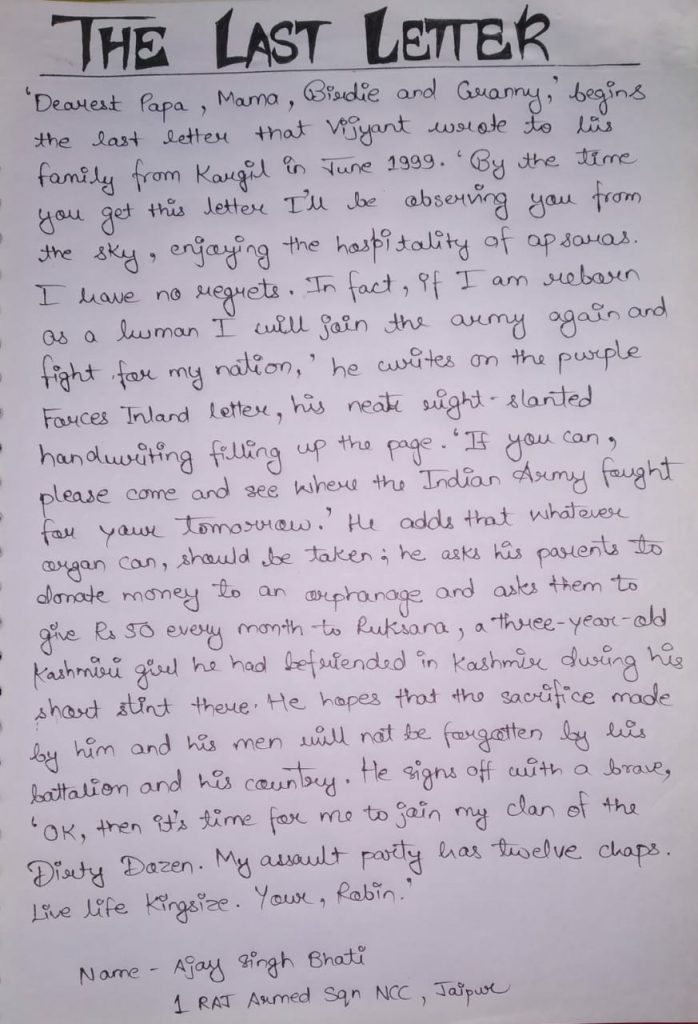 THE LAST LETTER
'Dearest Papa, Mama, Birdie and Granny,' begins
the last letter that Vijyant wrote to his
family from Kargil in June 1999. 'By the time
you get this letter I'll be observing you from
the sky, enjoying the hospitality of apsaras.
I have no regrets. In fact, if I am reborn
as a human I will join the army again and
fight for my nation,' he writes on the purple
Forces Inland letter, his neat right-slanted
handwriting filling up the page. 'If you can,
please come and see where the Indian Army fought
for your tomorrow.' He adds that whatever
organ can, should be taken; he asks his parents to
donate money to an orphanage and asks them to
give Rs 50 every month to Ruksana, a three-year-old
Kashmiri girl he had befriended in Kashmir during his
short stint there. He hopes that the sacrifice made
by him and his men will not be forgotten by his
battalion and his country. He signs off with a brave,
'OK, then it's time for me to join my clan of the
Dirty Dozen. My assault party has twelve chaps.
Live life Kingsize. Your, Robin.'
Name - Ajay Singh Bhati
1 RAJ Armed Sqn NCC, Jaipur